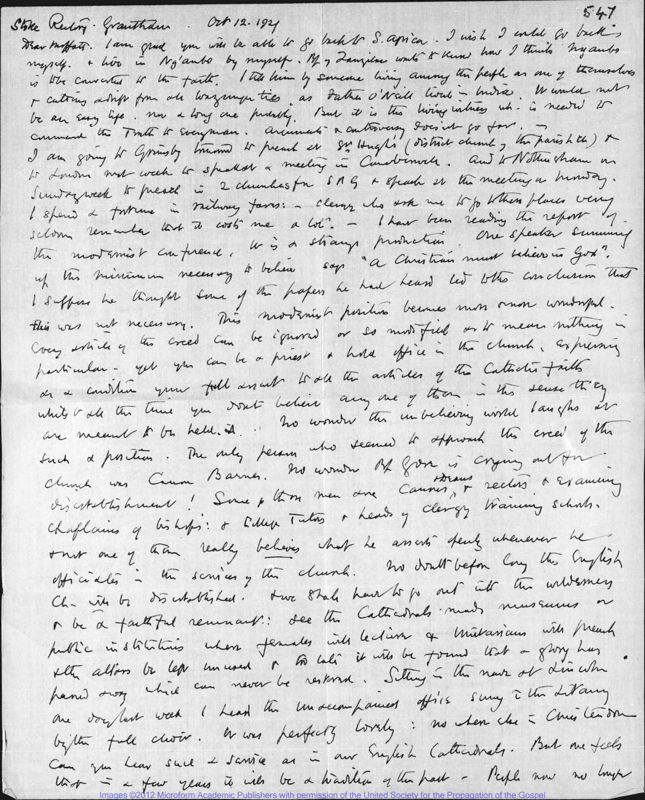 547
Stoke Rectory. Grantham. Oct 12. 1921
Dear Moffatt. I am glad you will be able to go back to S. Africa. I wish I could go back
myself. & live in by myself. Bp of Zanzibar wants to know how I think
is to be converted to the faith. I tell him by someone living among the people as one of themselves
& cutting adrift from all ties, as Father O'Neill lived in India. It would not
be an easy life. nor a long one probably. But it is the living witness wh. is needed to
commend the Truth to Everyman. Arguments & controversy doesn't go far. —
I am going to Grimsby tomorrow to preach at St Hugh's (district church of the parish ch) &
to London next week to speak at a meeting in Camberwell. And to Nottingham on
Sunday week to preach in 2 churches for S P G & speak at the meeting on Monday.
I spend a fortune in railway fares: – clergy who ask me to go to these places very
seldom remember that it costs me a lot. — I have been reading the report of
the modernist conference. It is a strange production. One speaker summing
up the minimum necessary to believe says "a Christian must believe in God".
I suppose he thought some of the papers he had heard led to the conclusion that
this was not necessary. This modernist position becomes more & more wonderful.
Every article of the creed can be ignored or so modified as to mean nothing in
particular – yet you can be a priest & hold office in the church, expressing
as a condition your full assent to all the articles of the Catholic faith
whilst all the time you don't believe any one of them in the sense they
are meant to be held. No wonder the unbelieving world laughs at
such a position. The only person who seemed to approach the creed of the
church was Canon Barnes. No wonder Bp Gore is crying out for
disestablishment! Some of these men are Canons, Deans & rectors & examining
chaplains of bishops: & College Tutors & heads of clergy training schools.
& not one of them really believes what he asserts openly whenever he
officiates in the services of the church. No doubt before long the English
Ch. will be disestablished. & we shall have to go out into the wilderness
& be a faithful remnant: see the Cathedrals made museums or
public institutions where females will lecture & Unitarians will preach
& the altars be left unused & too late it will be found that a glory has
passed away which can never be restored. Sitting in the nave at Lincoln
one day last week I heard the unaccompanied office sung & the Litany
by the full choir. It was perfectly lovely: no where else in Christendom
can you hear such a service as in our English Cathedrals. But one feels
that in a few years it will be a tradition of the past – People now no longer
Images ©2012 Microform Academic Publishers with permission of the United Society for the Propagation of the Gospel